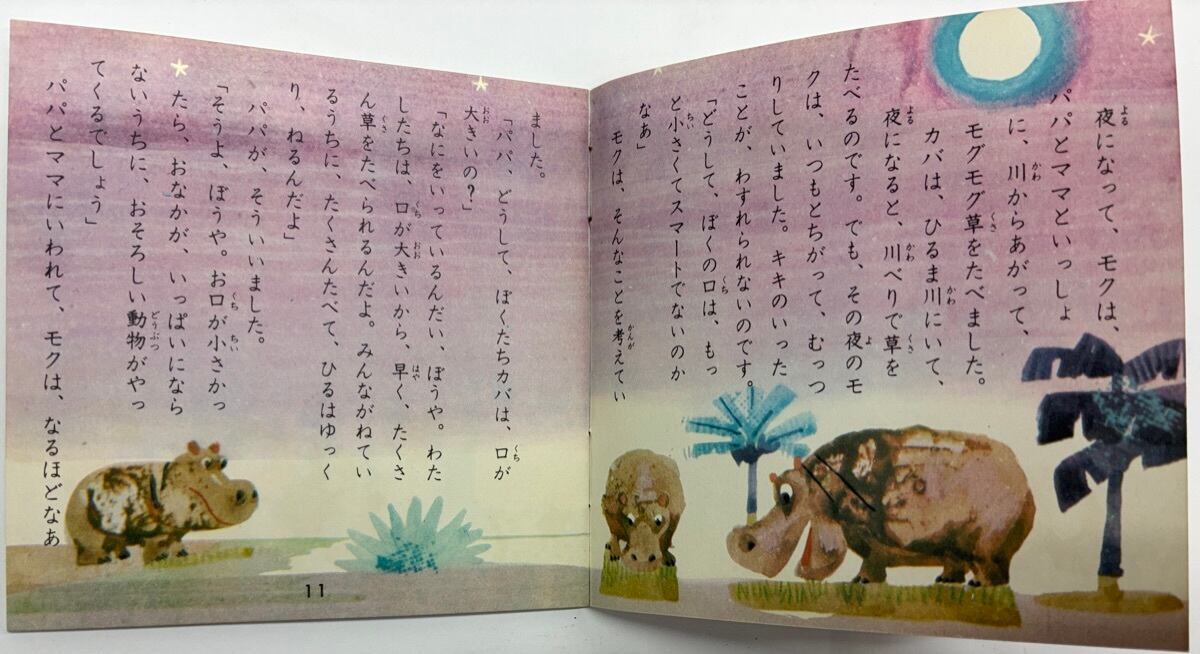 夜になって、モクは、
パパとママといっしょ
に、川からあがって、
モグモグ草をたべました。
カバは、ひるま川にいて、
夜になると、川べりで草を
たべるのです。でも、その夜のモ
クは、いつもとちがって、むっつ
りしていました。キキのいった
ことが、わすれられないのです。
「どうして、ぼくの口は、もっ
と小さくてスマートでないのか
なあ」
モクは、そんなことを考えてい
ました。
「パパ、どうして、ぼくたちカバは、口が
大きいの？」
「なにをいっているんだい、ぼうや。わた
したちは、口が大きいから、早く、たくさ
ん草をたべられるんだよ。みんながねてい
るうちに、たくさんたべて、ひるはゆっく
り、ねるんだよ」
パパが、そういいました。
「そうよ、ぼうや。お口が小さかっ
たら、おなかが、いっぱいになら
ないうちに、おそろしい動物がやっ
てくるでしょう」
パパとママにいわれて、モクは、なるほどなあ
11